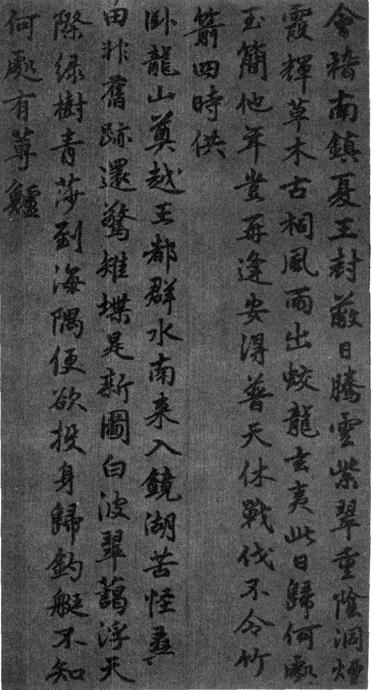 會稽南鎮夏王封蔽日騰雲紫翠重陰洞煙
霞輝草木古祠風雨出蛟龍玄夷此日歸何處
玉簡他年豈再逢安得普天休戰伐不令竹
箭四時供
臥龍山奠越王都群水南來入鏡湖苦怪桑
田非舊跡還驚雉堞是新圖白波翠藹浮天
際綠樹青莎到海隅便欲投身歸釣艇不知
何處有蓴鱸